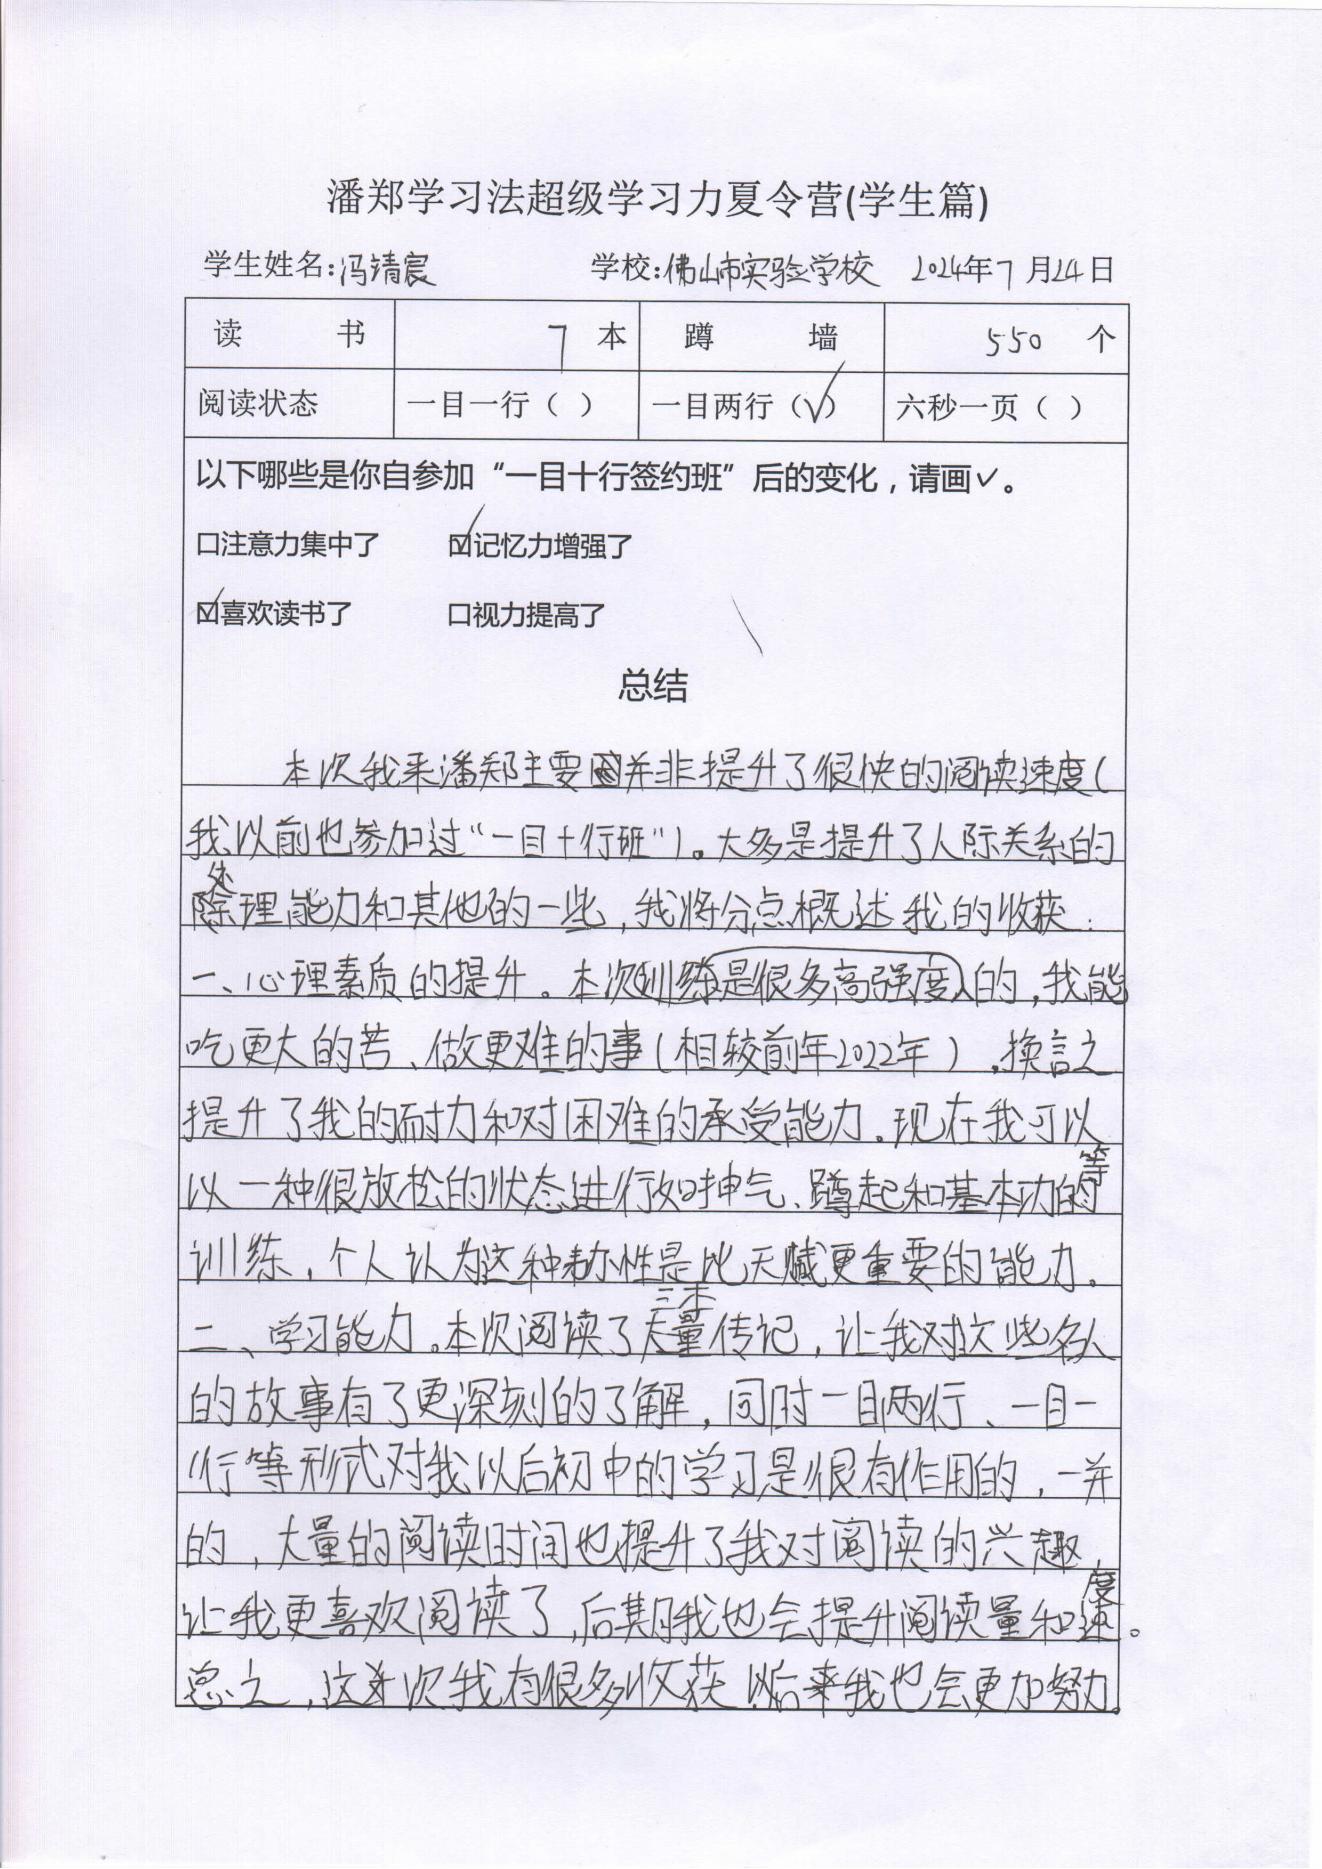 潘郑学习法超级学习力夏令营(学生篇)
学生姓名:冯靖宸 学校:佛山市实验学校 2024年7月24日
读书 7 本 蹲墙 550 个
阅读状态 一目一行（ ） 一目两行（✓） 六秒一页（ ）
以下哪些是你自参加“一目十行签约班”后的变化，请画✓。
口注意力集中了 ☑记忆力增强了
☑喜欢读书了 口视力提高了
总结
本次我来潘郑主要并非提升了很快的阅读速度(
我以前也参加过“一目十行班”)。大多是提升了人际关系的
处理能力和其他的一些,我将分点概述我的收获:
一、心理素质的提升。本次训练是很多高强度的,我能
吃更大的苦、做更难的事(相较前年2022年),换言之
提升了我的耐力和对困难的承受能力。现在我可以
以一种很放松的状态进行如抻气、蹲起和基本功等的
训练,个人认为这种韧性是比天赋更重要的能力。
二、学习能力。本次阅读了三本传记,让我对这些名人
的故事有了更深刻的了解,同时一目两行、一目一
行等形式对我以后初中的学习是很有作用的,一并
的,大量的阅读时间也提升了我对阅读的兴趣,
让我更喜欢阅读了,后期我也会提升阅读量和速度。
总之,这次我有很多收获,以后来我也会更加努力。